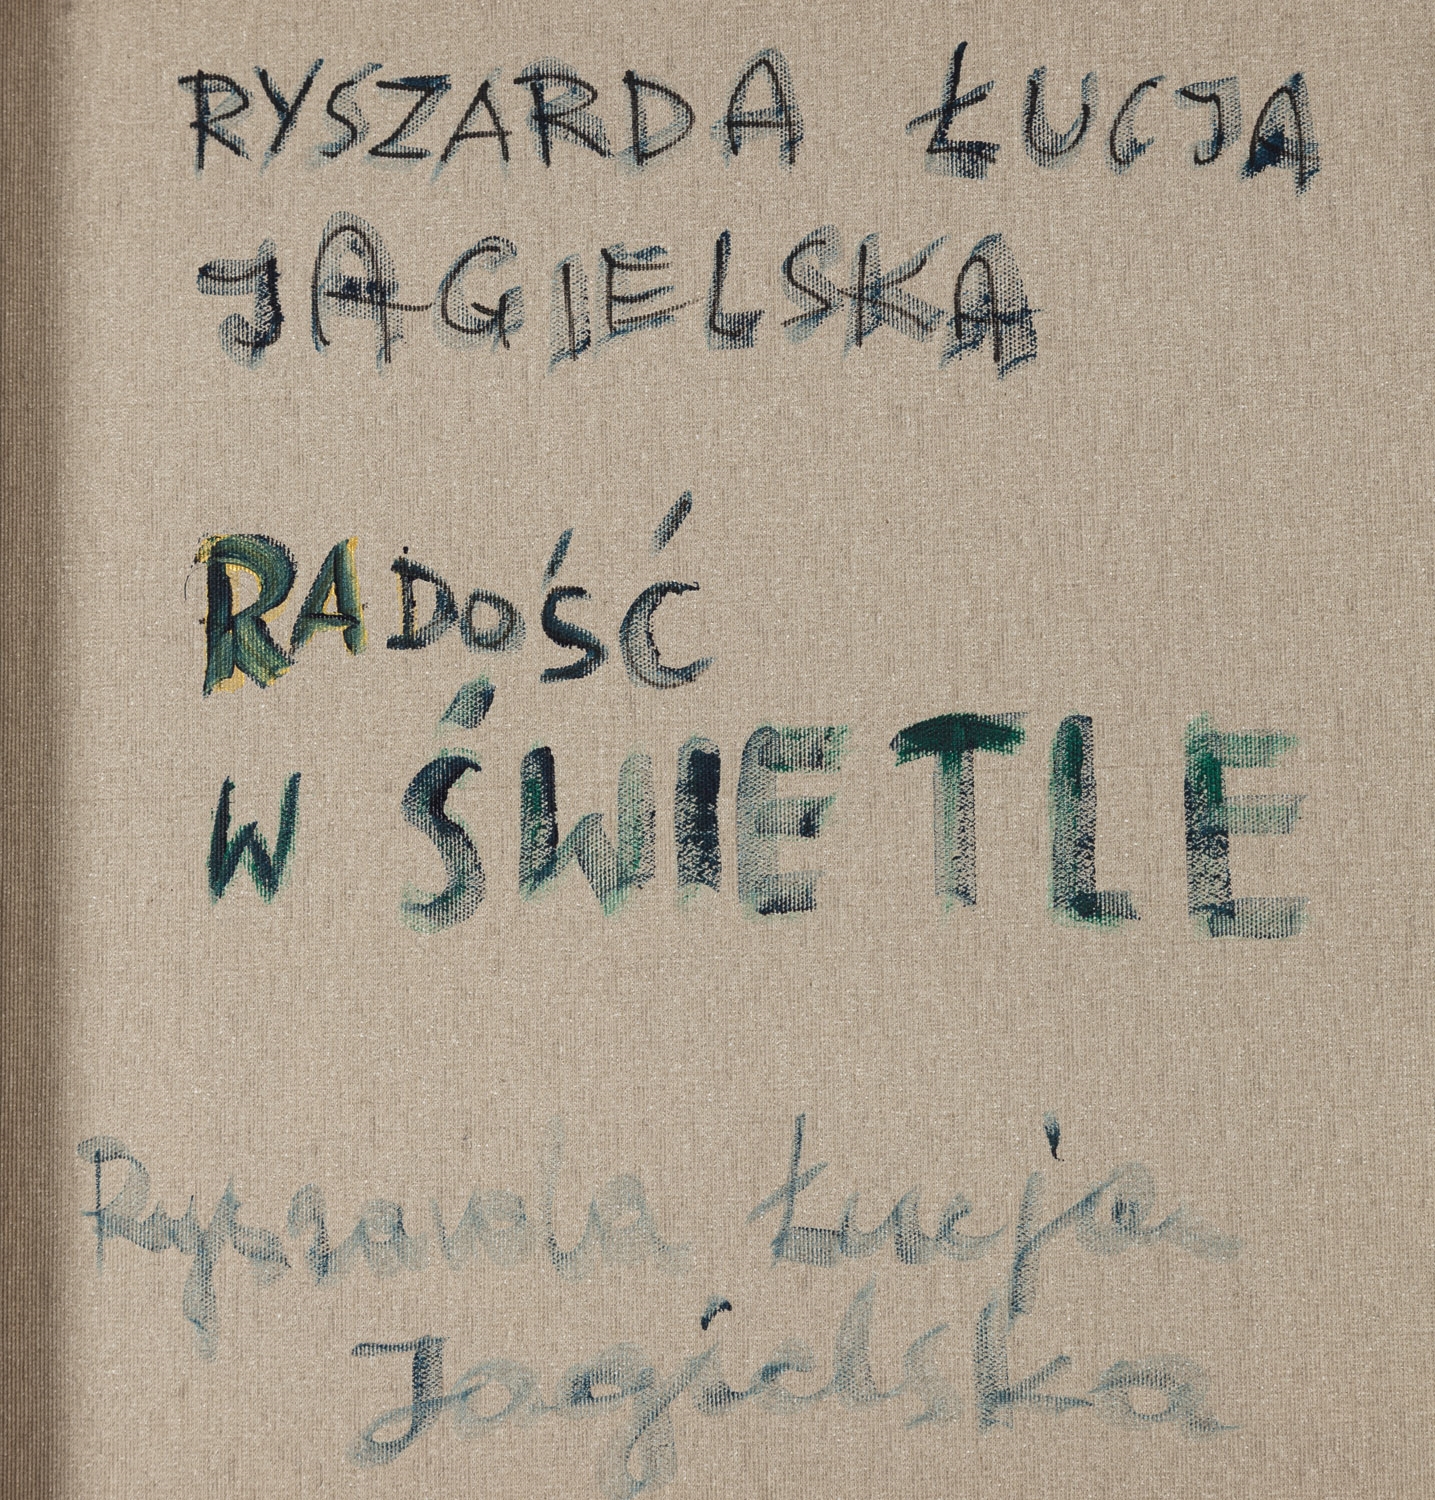 RYSZARDA ŁUCJA
JAGIELSKA
RADOŚĆ
W ŚWIETLE
Ryszarda Łucja
Jagielska